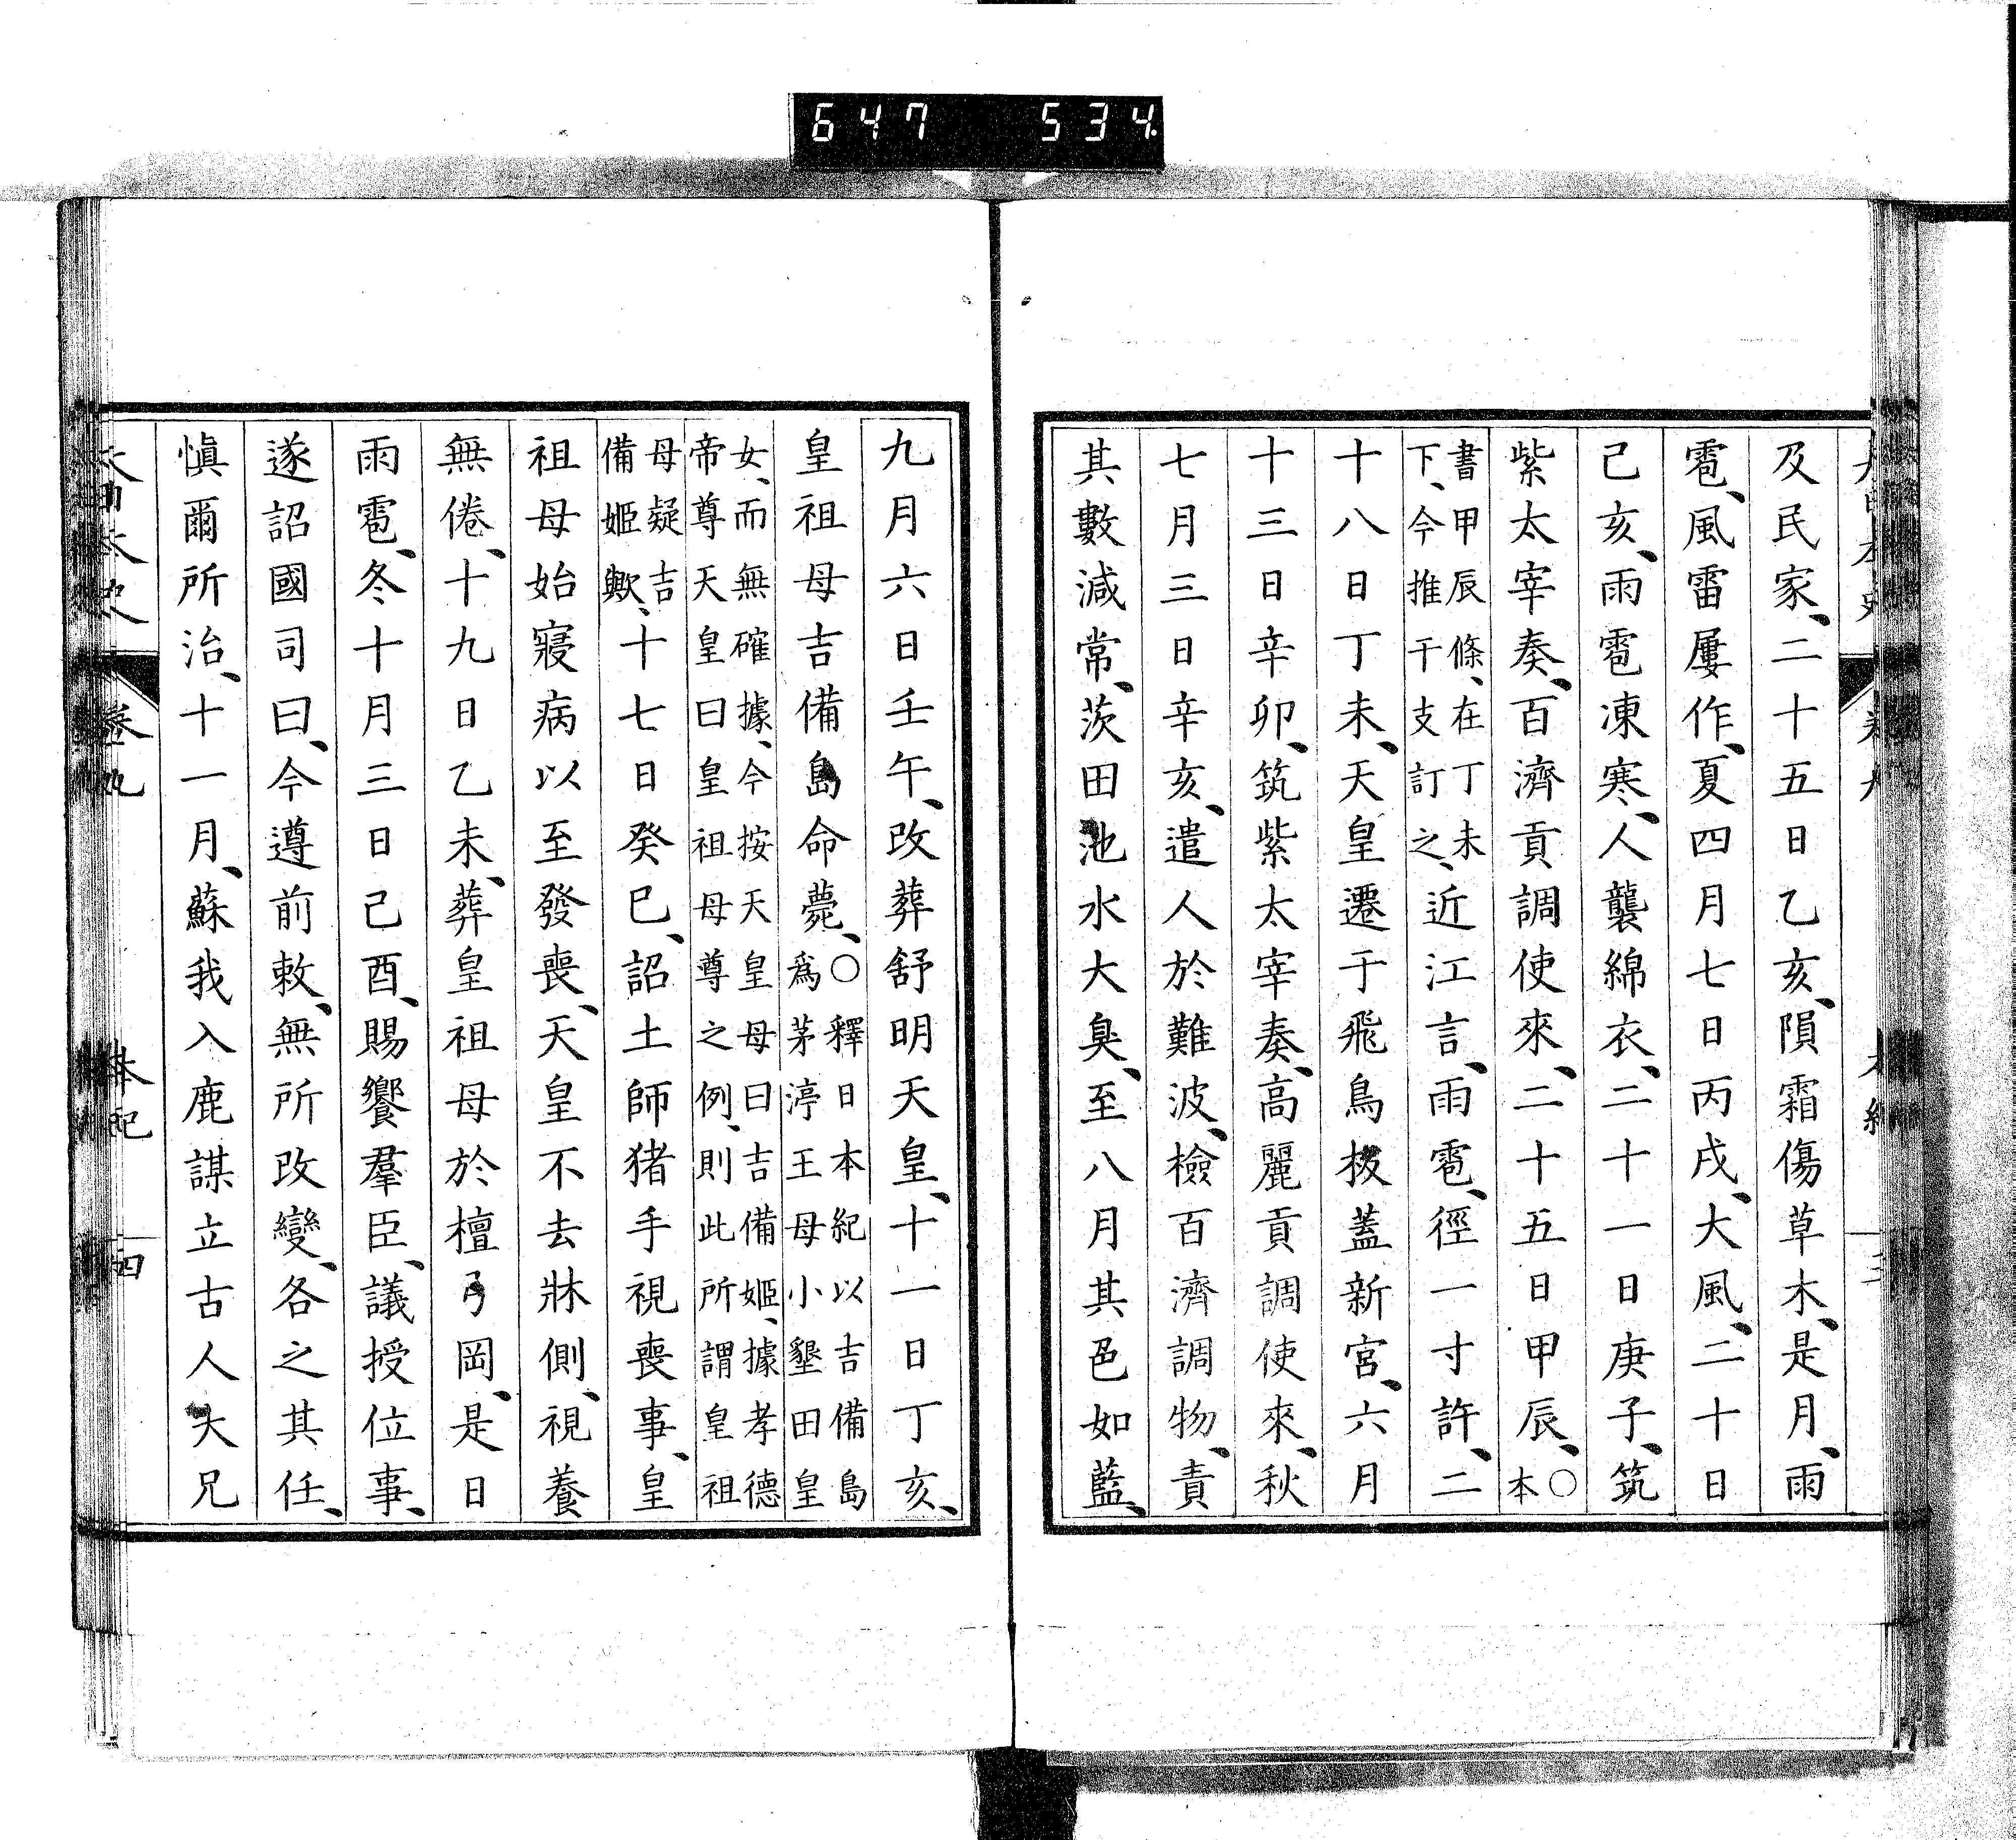 647 534
及民家、二十五日乙亥、隕霜傷草木、是月、雨
雹、風雷屢作、夏四月七日丙戌、大風、二十日
己亥、雨雹凍寒、人襲綿衣、二十一日庚子、筑
紫太宰奏、百濟貢調使來、二十五日甲辰、○本
書甲辰條、在丁未
下、今推干支訂之、近江言、雨雹、徑一寸許、二
十八日丁未、天皇遷于飛鳥板蓋新宮、六月
十三日辛卯、筑紫太宰奏、高麗貢調使來、秋
七月三日辛亥、遣人於難波、檢百濟調物、責
其數減常、茨田池水大臭、至八月其色如藍、
九月六日壬午、改葬舒明天皇、十一日丁亥、
皇祖母吉備島命薨、○釋日本紀以吉備島
爲茅渟王母小墾田皇
女、而無確據、今按天皇母曰吉備姬、據孝德
帝尊天皇曰皇祖母尊之例、則此所謂皇祖
母疑吉
備姬歟、十七日癸巳、詔土師猪手視喪事、皇
祖母始寢病以至發喪、天皇不去牀側、視養
無倦、十九日乙未、葬皇祖母於檀弓岡、是日
雨雹、冬十月三日己酉、賜饗羣臣、議授位事、
遂詔國司曰、今遵前敕、無所改變、各之其任、
愼爾所治、十一月、蘇我入鹿謀立古人大兄
卷九
本紀
四